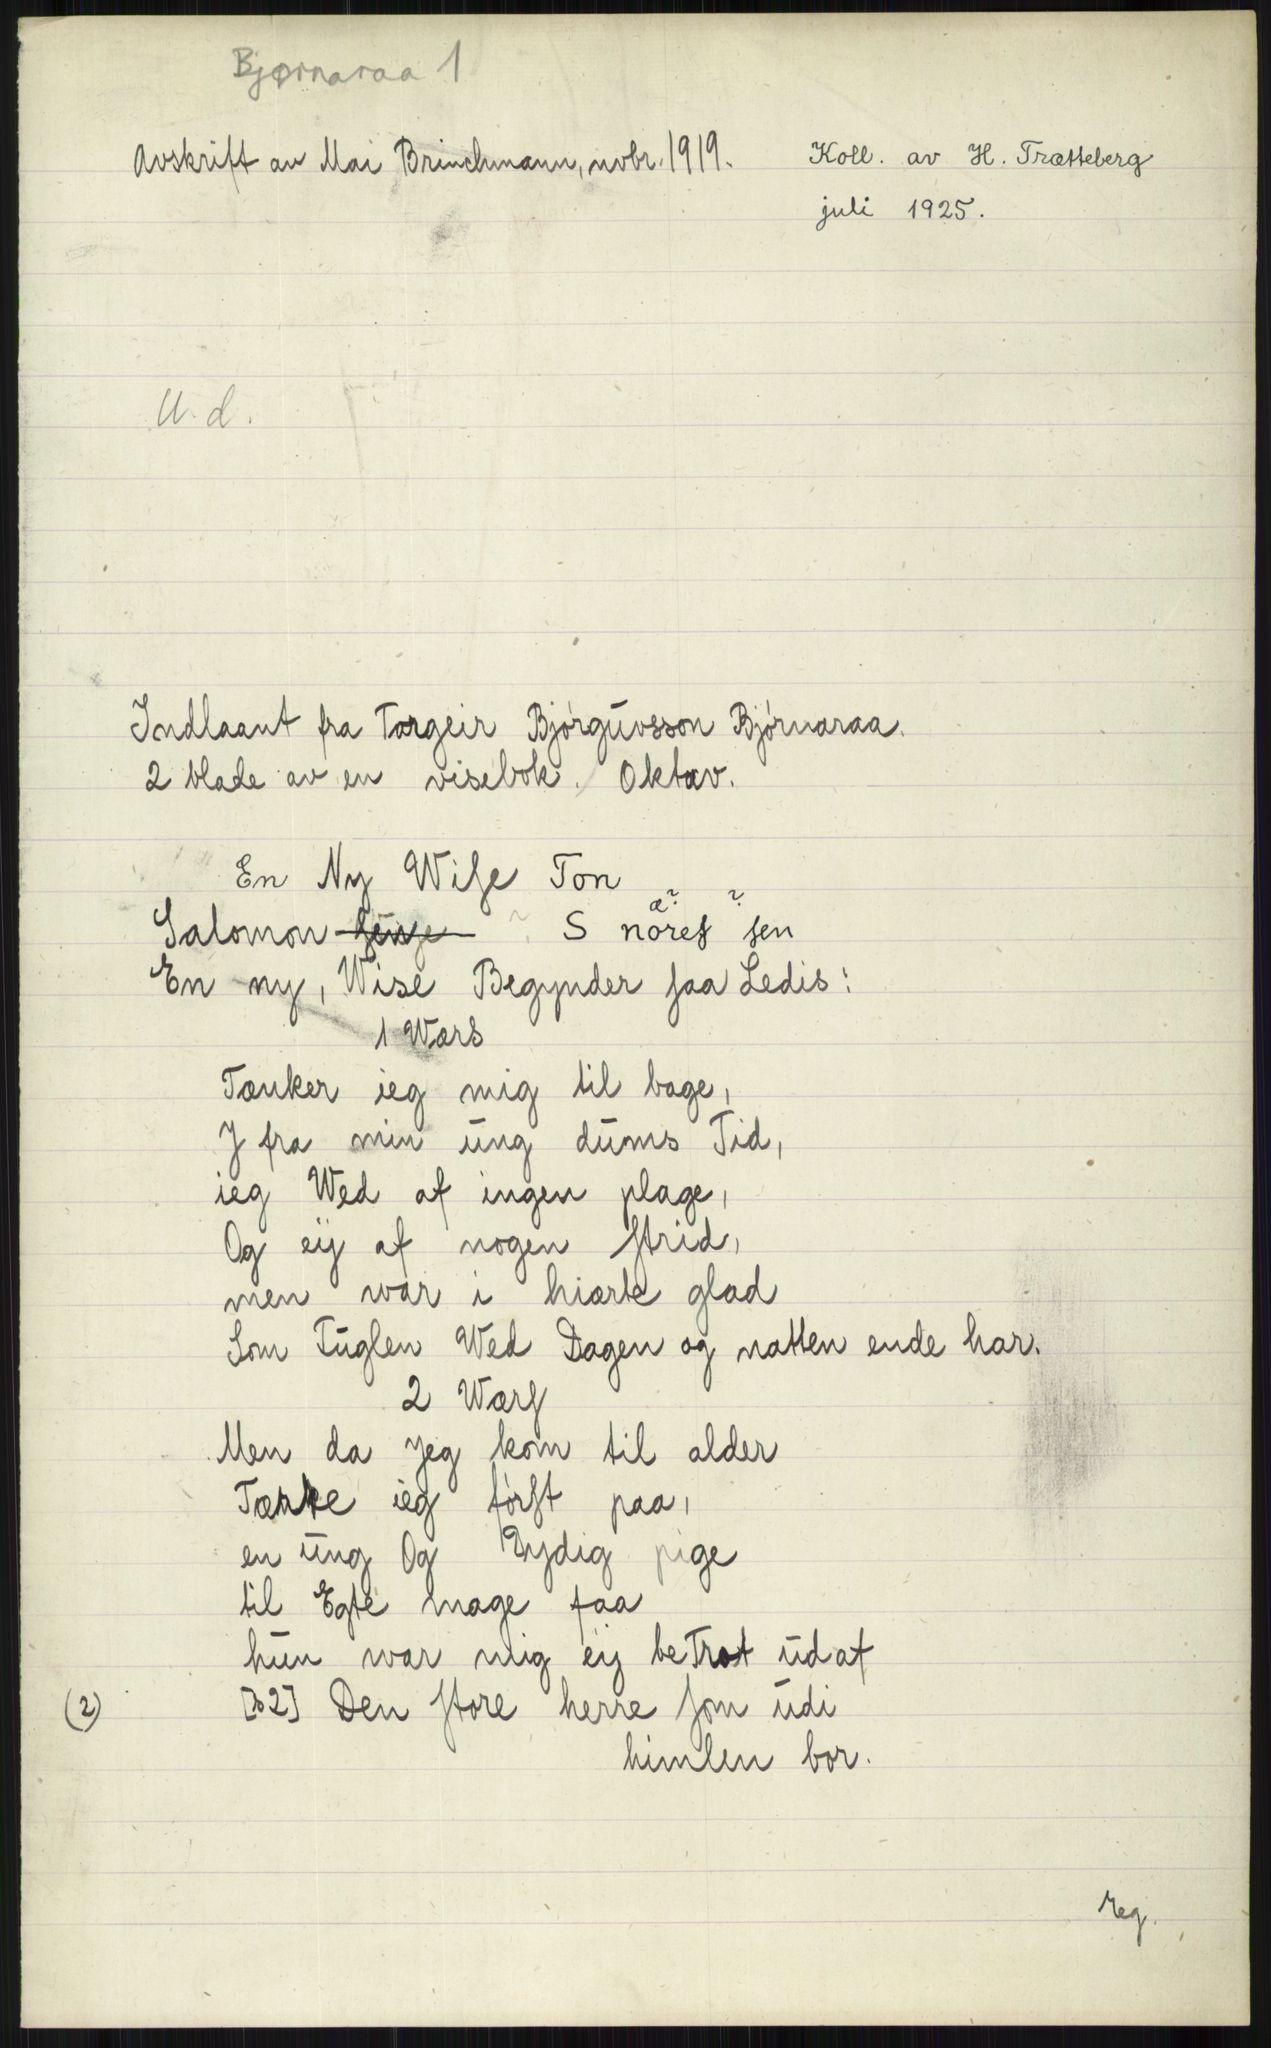 Bjørnaraa 1
Avskrift av Mai Brinchmann, novbr. 1919.
Koll. av H. Trætteberg
juli 1925.
U. d.
Indlaant fra Torgeir Bjørguvsson Bjørnaraa.
2 blade av en visebok. Oktav.
En Ny Wiſe Ton
Salomon S nöreſ ſen
æ? ?
En ny, Wise Begynder saa Ledis:
1 Wærs
Tænker ieg mig til bage,
J fra min ūng dūms Tid,
ieg Wed af ingen plage,
Og eÿ af nogen ſtrid,
men war i hiærte glad
Som Fūglen Wed Dagen og natten ende har.
2 Wærſ
Men da Jeg kom til alder
Tænkte ieg førſt paa,
en ūng Og Dydig pige
til Egte mage faa
hūn war mig eÿ be Trot ūd af
(2) [b2] Den ſtore herre ſom ūdi
himlen bor.
reg.